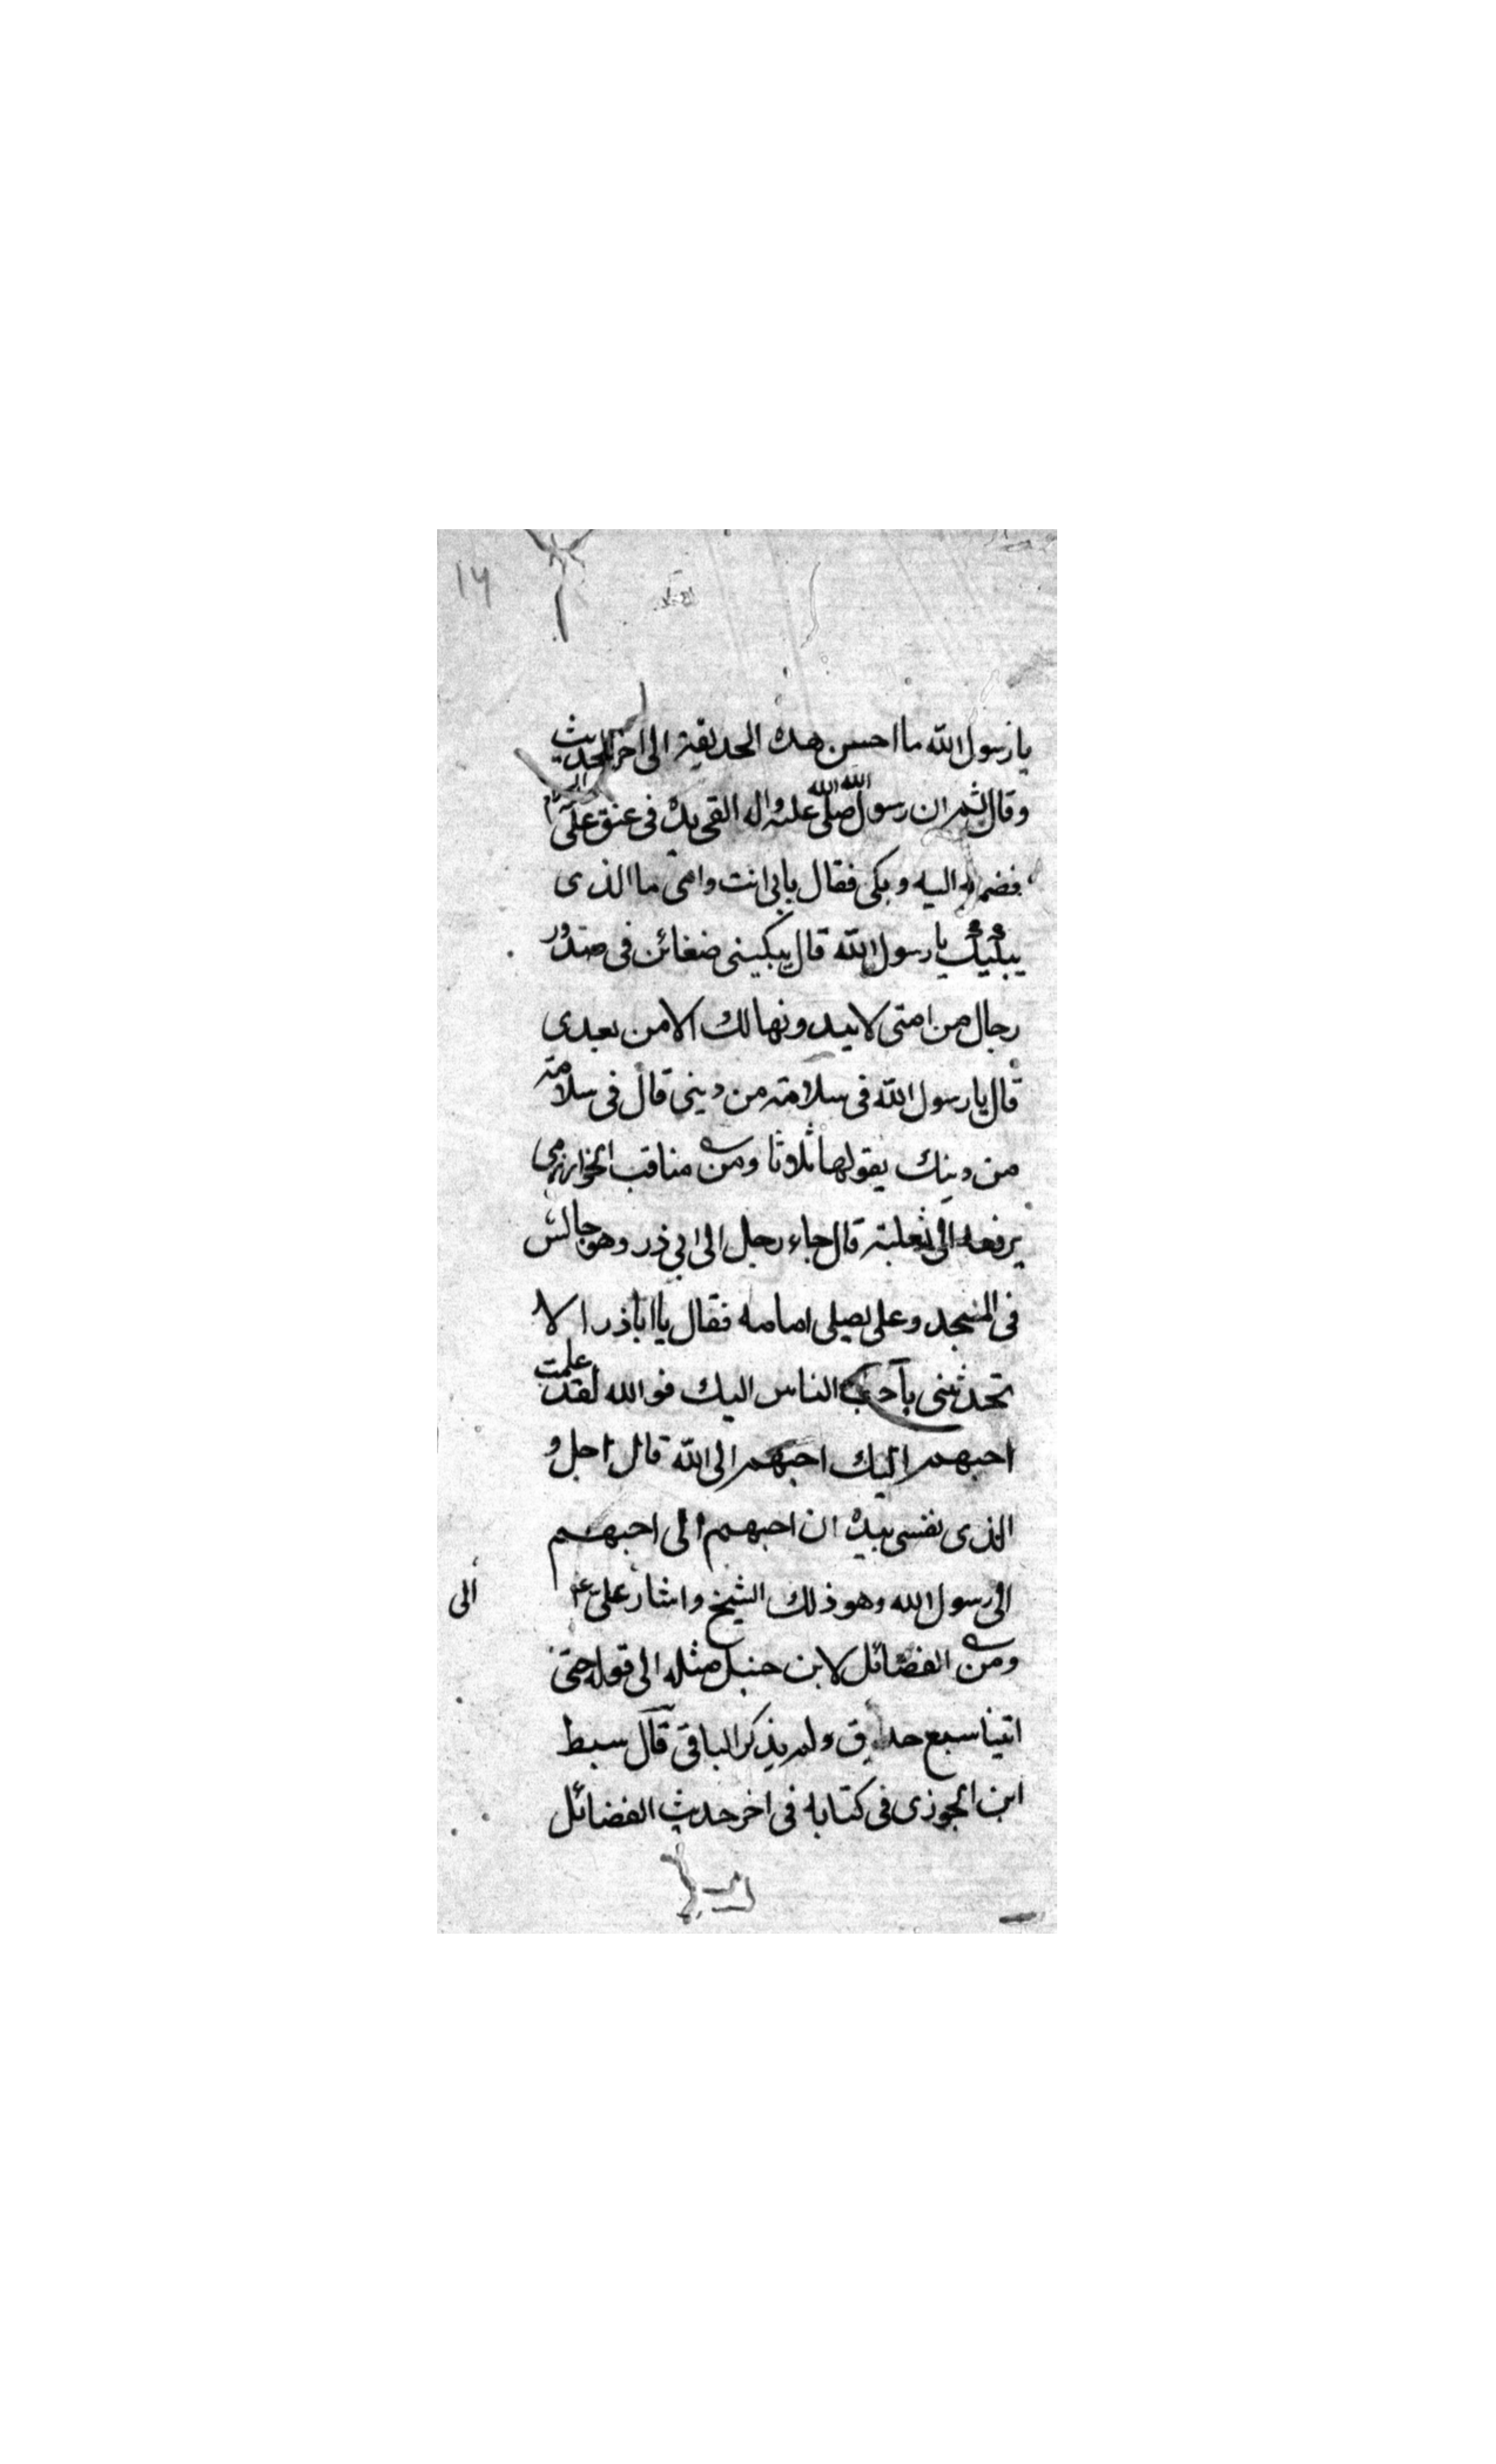 ١٦
يا رسول الله ما احسن هذه الحديقة الى اخر الحديث
وقال ثم ان رسول الله صلى الله عليه واله القى يده فى عنق على
فضمه اليه وبكى فقال بابى انت وامى ما الذى
يبكيك يا رسول الله قال يبكينى ضغائن فى صدور
رجال من امتى لا يبدونها لك الا من بعدى
قال يا رسول الله فى سلامة من دينى قال فى سلامة
من دينك يقولها ثلاثا ومن مناقب الخوارزمى
يرفعه الى ثعلبة قال جاء رجل الى ابى ذر وهو جالس
فى المسجد وعلى يصلى امامه فقال يا اباذر الا
تحدثنى باحب الناس اليك فوالله لقد علمت
احبهم اليك احبهم الى الله قال اجل و
الذى نفسى بيده ان احبهم الى احبهم
الى رسول الله وهو ذلك الشيخ واشار على ع الى
ومن الفضائل لابن حنبل مثله الى قوله حتى
اتينا سبع حدايق ولم يذكر الباقى قال سبط
ابن الجوزى فى كتابه فى اخر حديث الفضائل